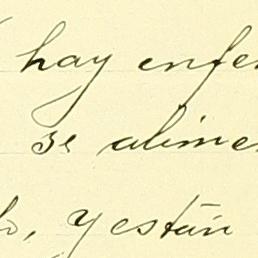 hay enfe
se alime
y están